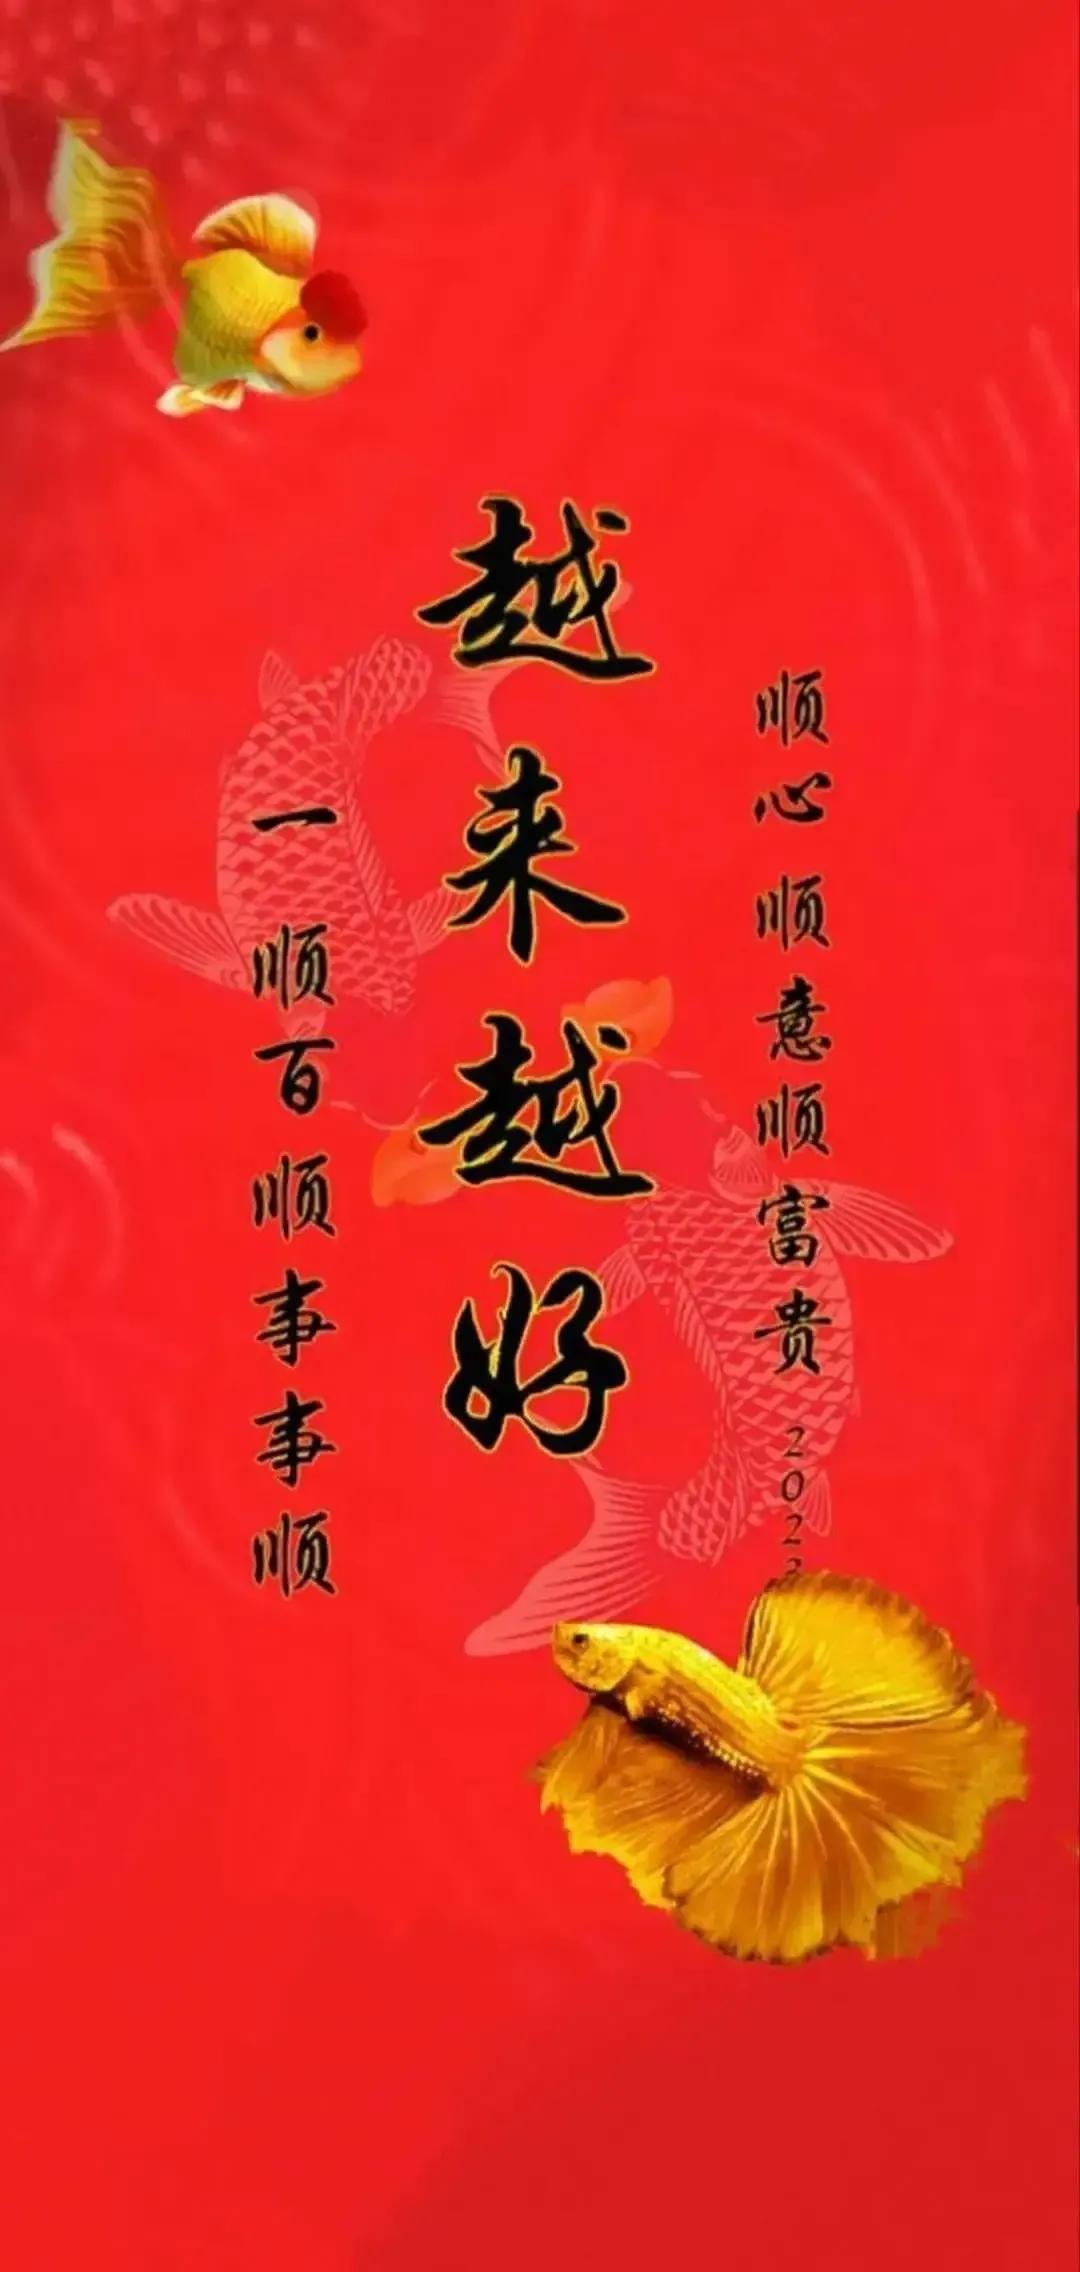 顺心顺意顺富贵 2023
越来越好
一顺百顺事事顺